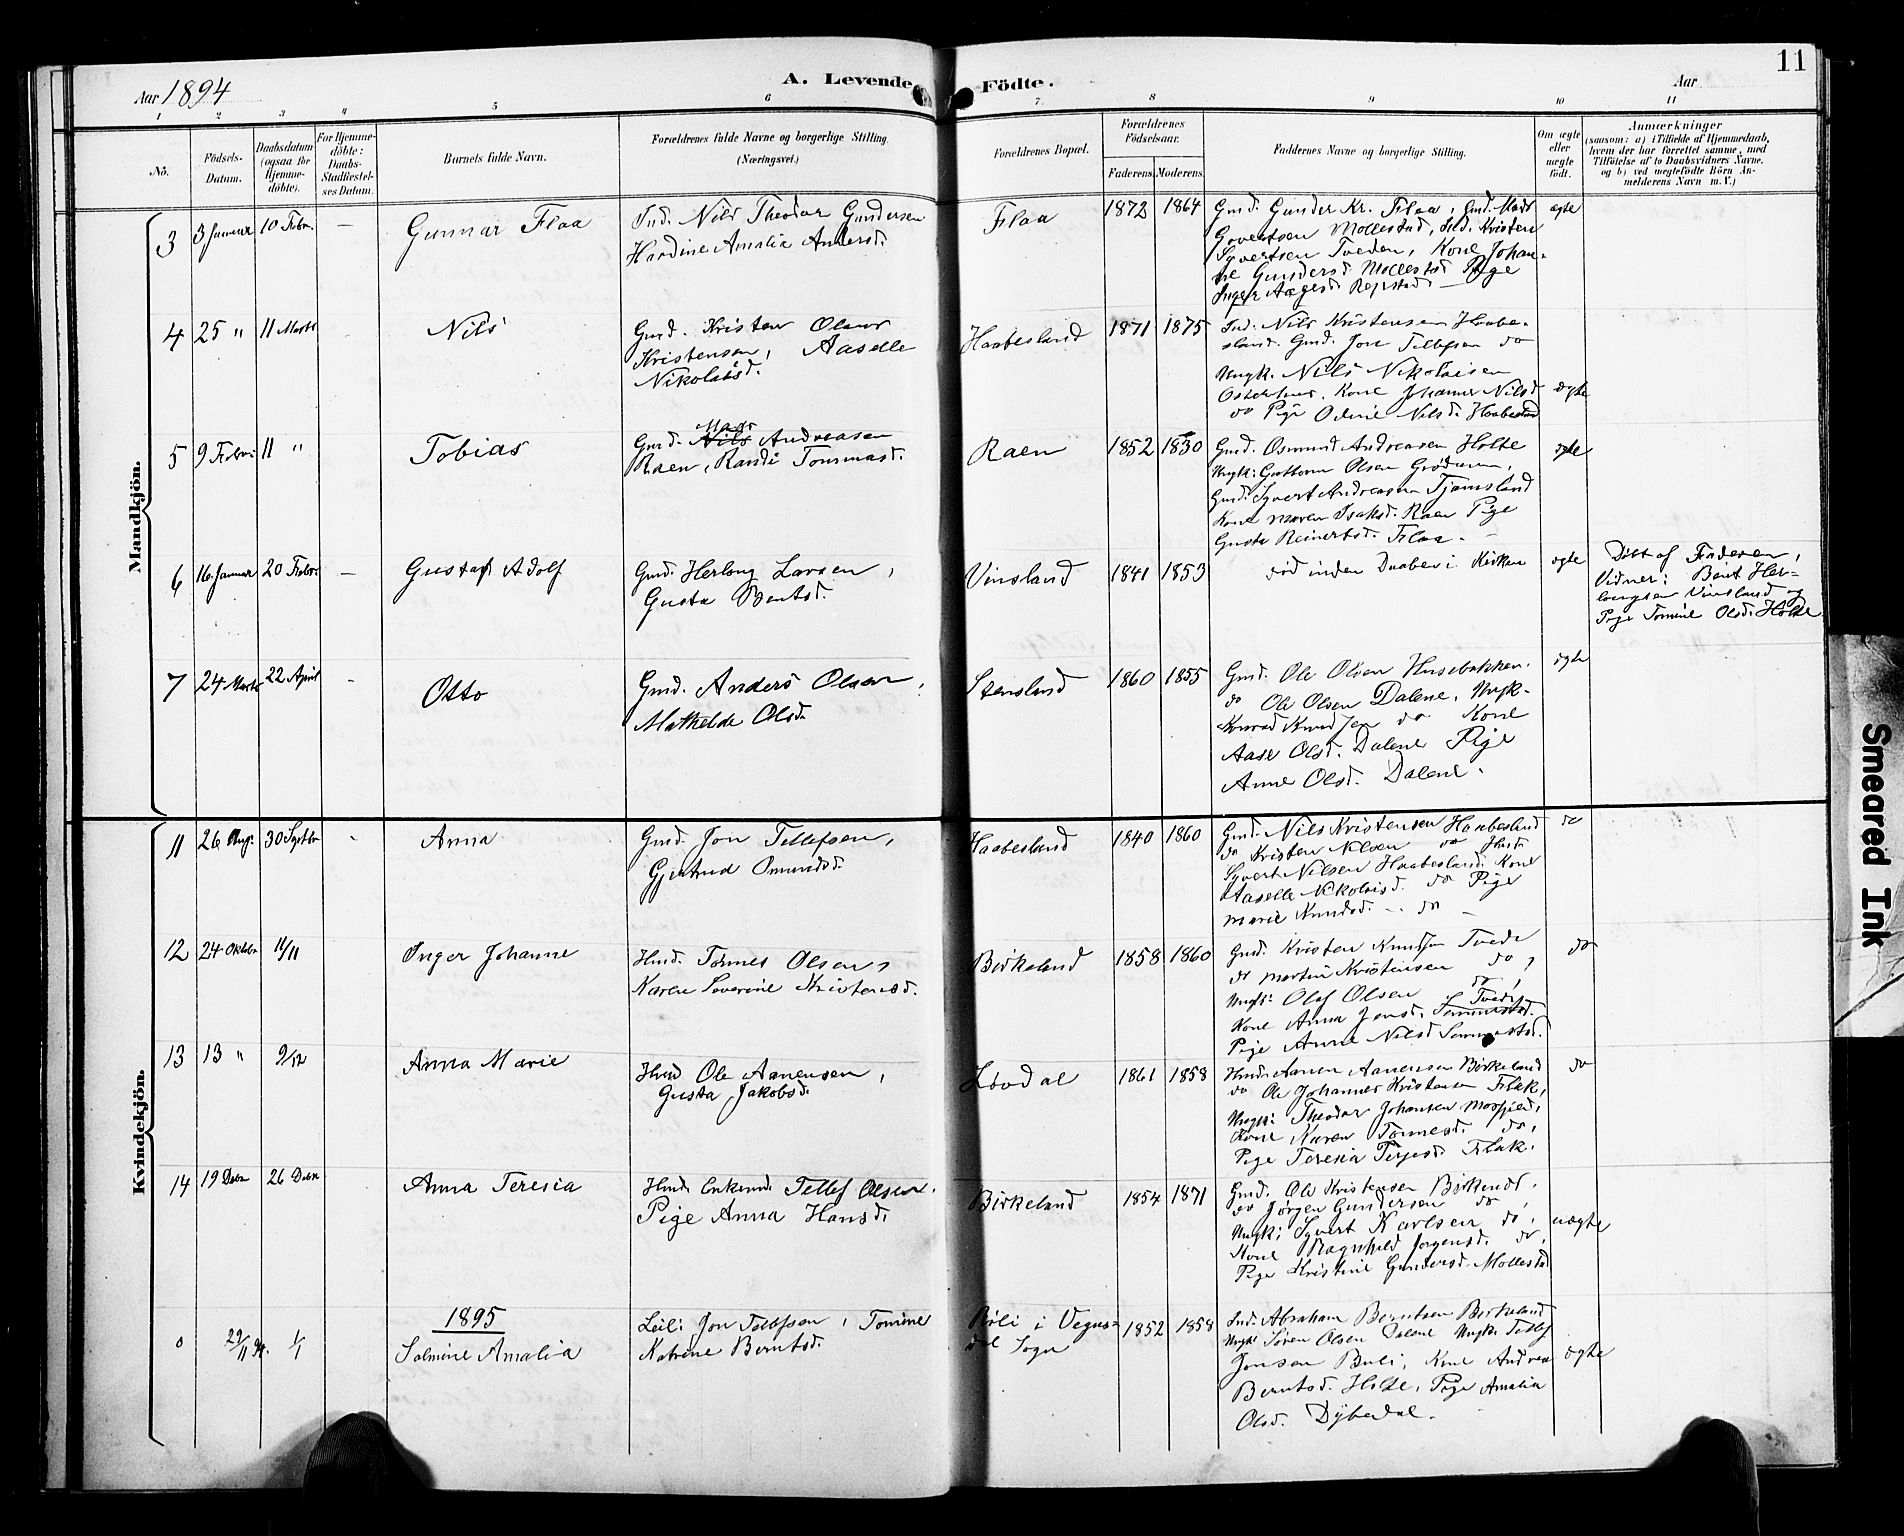 11
Aar 1894
A. Levende Födte.
Aar
1 2 3 4 5 6 7 8 9 10 11
No.
Födsels-Datum.
Daabsdatum (ogsaa for Hjemme-döbte).
For Hjemme-döbte: Daabs-Stadfæstel-ses Datum.
Barnets fulde Navn.
Forældrenes fulde Navne og borgerlige Stilling. (Næringsvei.)
Forældrenes Bopæl.
Forældrenes Födselsaar.
Faderens Moderens
Faddernes Navne og borgerlige Stilling.
Om ægte eller uægte födt.
Anmærkninger
(saasom: a) i Tilfælde af Hjemmedaab,
hvem der har forrettet samme, med
Tilföielse af to Daabsvidners Navne,
og b) ved uægtefödte Börn An-
melderens Navn m. V.)
Mandkjön.
3 3 Januar 10 Febr. — Gunnar Flaa
Ind. Nils Theodor Gundersen
Hardine Amalia Andersd.
Flaa 1872 1864
Gmd. Gunder Kr. Flaa, Gmd. Mads
Govertsen Mollestad, Ind. Kristen
Syvertsen Tveden, Kone Johan-
ne Gundersd. Mollestad Pige
Inger Aagesd. Repstad —
ægte
4 25 " 11 Marts Nils
Gmd. Kristen Olaus
Kristensen, Aaselle
Nikolaisd.
Haabesland 1871 1875
Ind. Nils Kristensen Haabe-
sland. Gmd. Jon Tellefsen do
Ungk. Nils Nikolaisen
Kone Johanne Nilsd
do Pige Nilsd. Haabesland
ægte
5 9 Febr. 11 " Tobias
Mads
Gmd. Nils Andreasen
Raen, Randi Tommasd.
Raen 1852 1850
Gmd. Osmund Andreasen Holte
Ungk: Guttorm Olsen
Gmd. Syvert Andreasen Tjomsland
Kone Maren Isaksd. Raen Pige
Gusta Reinertsd. Flaa. —
ægte
6 16 Januar 20 Febr. — Gustaf Adolf
Gmd. Herlaug Larsen,
Gusta Bentsd.
Vinsland 1841 1853
død inden Daaben i Kirken
ægte
Døbt af Faderen,
Vidner: Bent Her-
laugsen Vinsland og
Pige Tomine Olsd. Holte
7 24 Marts 22 April - Otto
Gmd. Anders Olsen,
Mathelde Olsd.
Stensland 1860 1855
Gmd. Ole Olsen Husebakken.
do Ole Olsen Dalene, Ungk.
Konrad Knudsen do Kone
Aase Olsd. Dalene Pige
Anne Olsd. Dalene.
ægte
Kvindekjön.
11 26 Aug. 30 Septbr - Anna
Gmd. Jon Tellefsen,
Gjertrud Omundsd.
Haabesland 1840 1860
Gmd. Nils Kristensen Haabesland
do Kristen Nilsen do
Syvert Nilsen Haabesland Kone
Aaselle Nikolaisd. do Pige
Marie Knudsd. — do —
do
12 24 Oktobr 11/11 Inger Johanne
Hmd. Tomes Olsen,
Karen Severine Kristensd.
Birkeland 1858 1860
Gmd. Kristen Knudsen Tvede
do Martin Kristensen do,
Ungk: Olaf Olsen do,
Kone Anna Jensd. Tvede
Pige Anne Nilsd
do
13 13 " 9/12 Anna Marie
Hmd Ole Aanensen,
Gusta Jakobsd.
Løvdal 1861 1858
Hmd. Aanen Aanensen Birkeland
do Ole Johannes Kristensen Flak,
Ungk: Theodor Johansen Mosfjeld,
Kone Karen Tomesd. do,
Pige Teresia Terjesd Flak.
do
14 19 Debr 26 Debr Anna Teresia
Hmd. Enkemd. Tellef Olsen.
Pige Anna Hansd.
Birkeland 1854 1871
Gmd. Ole Kristensen Birkeland.
do Jørgen Gundersen do
Ungk: Syvert Karlsen do,
Kone Ragnhild Jørgensd. do,
Pige Kristine Gundersd. Mollestad
uægte
1895
0 29/11 94. 1/1 Salmine Amalia
Leil: Jon Tellefsen, Tomine
Katrine Berntsd.
Røli i Vegus-
dal Sogn
1852 1858
Ind. Abraham Berntsen Birkeland
Ungk: Søren Olsen Dalene Ungk: Tellef
Jonsen Buli, Kone Andrea
Berntsd. Holte, Pige Amalia
Olsd. Dybedal.
ægte
Smeared Ink